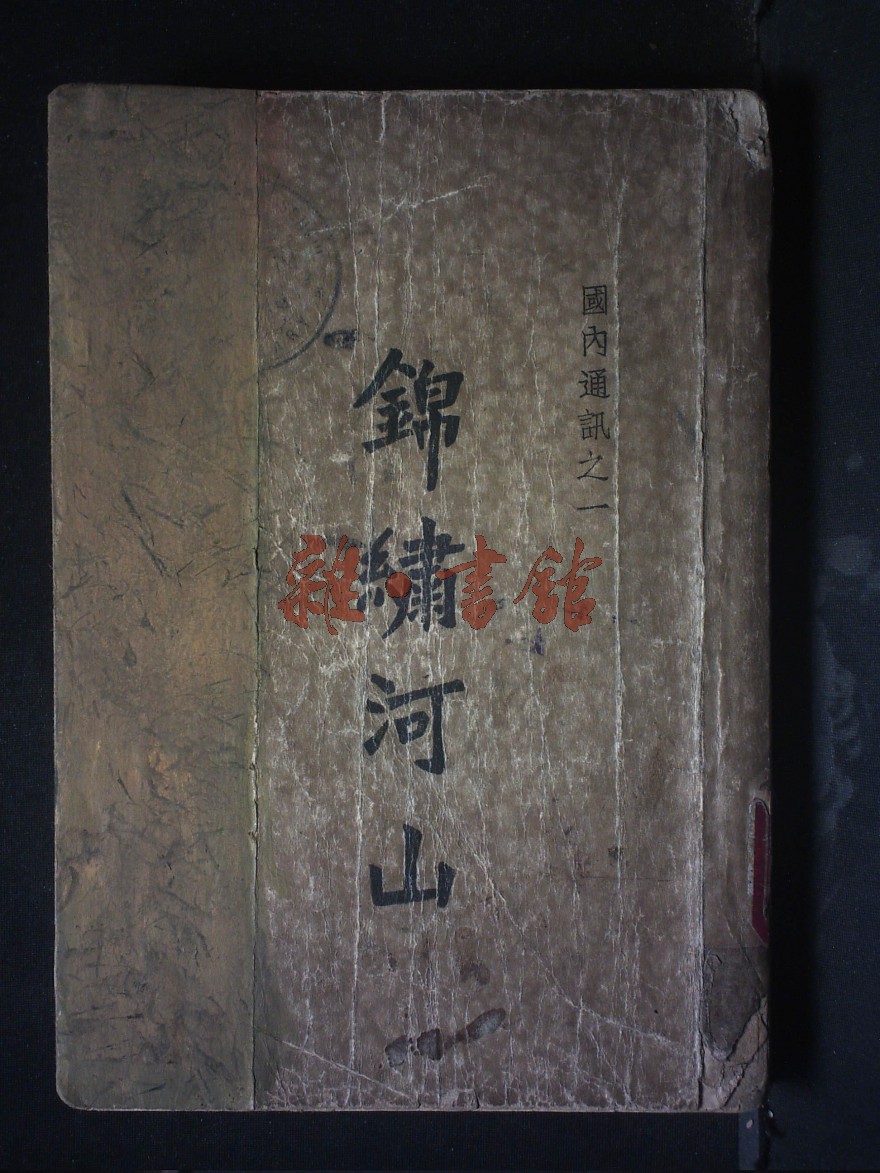 國內通訊之一
錦繡河山
雜·書館